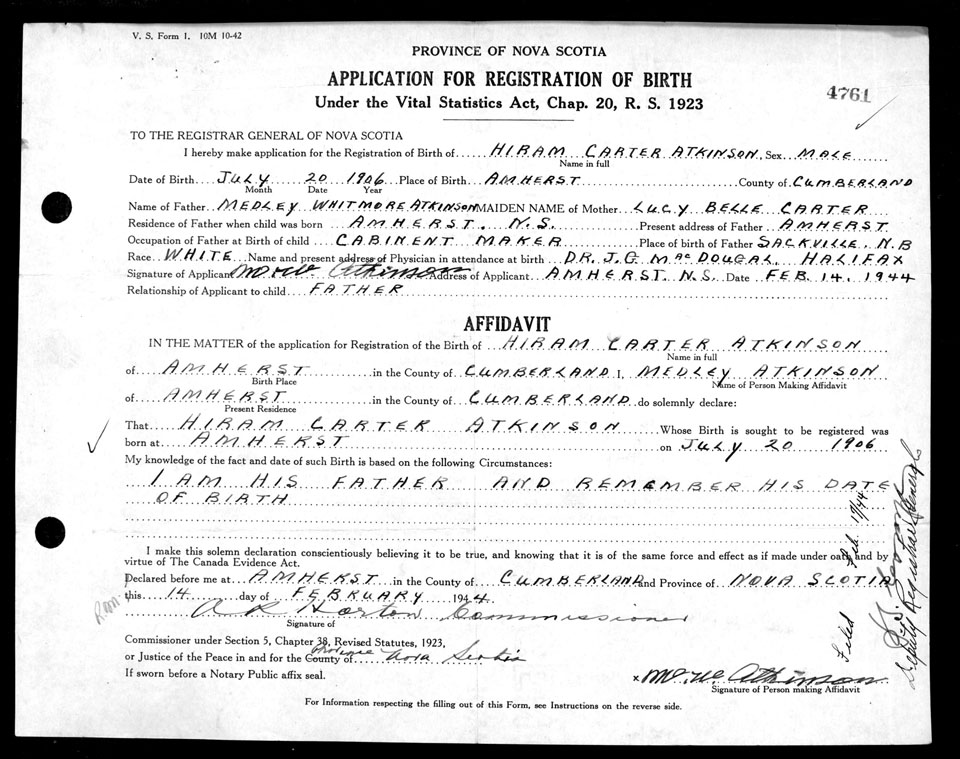 V. S. Form 1. 10M 10-42
PROVINCE OF NOVA SCOTIA
APPLICATION FOR REGISTRATION OF BIRTH
4761
Under the Vital Statistics Act, Chap. 20, R. S. 1923
TO THE REGISTRAR GENERAL OF NOVA SCOTIA
I hereby make application for the Registration of Birth of HIRAM CARTER ATKINSON, Sex MALE
Name in full
Date of Birth JULY 20 1906 Place of Birth AMHERST County of CUMBERLAND
Month Date Year
Name of Father MEDLEY WHITMORE ATKINSON MAIDEN NAME of Mother LUCY BELLE CARTER
Residence of Father when child was born AMHERST. N.S. Present address of Father AMHERST
Occupation of Father at Birth of child CABINENT MAKER Place of birth of Father SACKVILLE, N.B
Race WHITE Name and present address of Physician in attendance at birth DR. J.G. MACDOUGAL, HALIFAX
Signature of Applicant M. W. Atkinson Address of Applicant AMHERST N.S. Date FEB. 14. 1944
Relationship of Applicant to child FATHER
AFFIDAVIT
IN THE MATTER of the application for Registration of the Birth of HIRAM CARTER ATKINSON
Name in full
of AMHERST in the County of CUMBERLAND I, MEDLEY ATKINSON
Birth Place Name of Person Making Affidavit
of AMHERST in the County of CUMBERLAND do solemnly declare:
Present Residence
That HIRAM CARTER ATKINSON Whose Birth is sought to be registered was
born at AMHERST on JULY 20 1906
My knowledge of the fact and date of such Birth is based on the following Circumstances:
I AM HIS FATHER AND REMEMBER HIS DATE
OF BIRTH
I make this solemn declaration conscientiously believing it to be true, and knowing that it is of the same force and effect as if made under oath and by
virtue of The Canada Evidence Act.
Declared before me at AMHERST in the County of CUMBERLAND and Province of NOVA SCOTIA
this 14 day of FEBRUARY 1944.
A R Horton Commissioner
Signature of
Commissioner under Section 5, Chapter 38, Revised Statutes, 1923,
Province
or Justice of the Peace in and for the County of Nova Scotia
If sworn before a Notary Public affix seal.
x M. W. Atkinson
Signature of Person making Affidavit
For Information respecting the filling out of this Form, see Instructions on the reverse side.
Filed Feb. 17/44
Deputy Registrar General